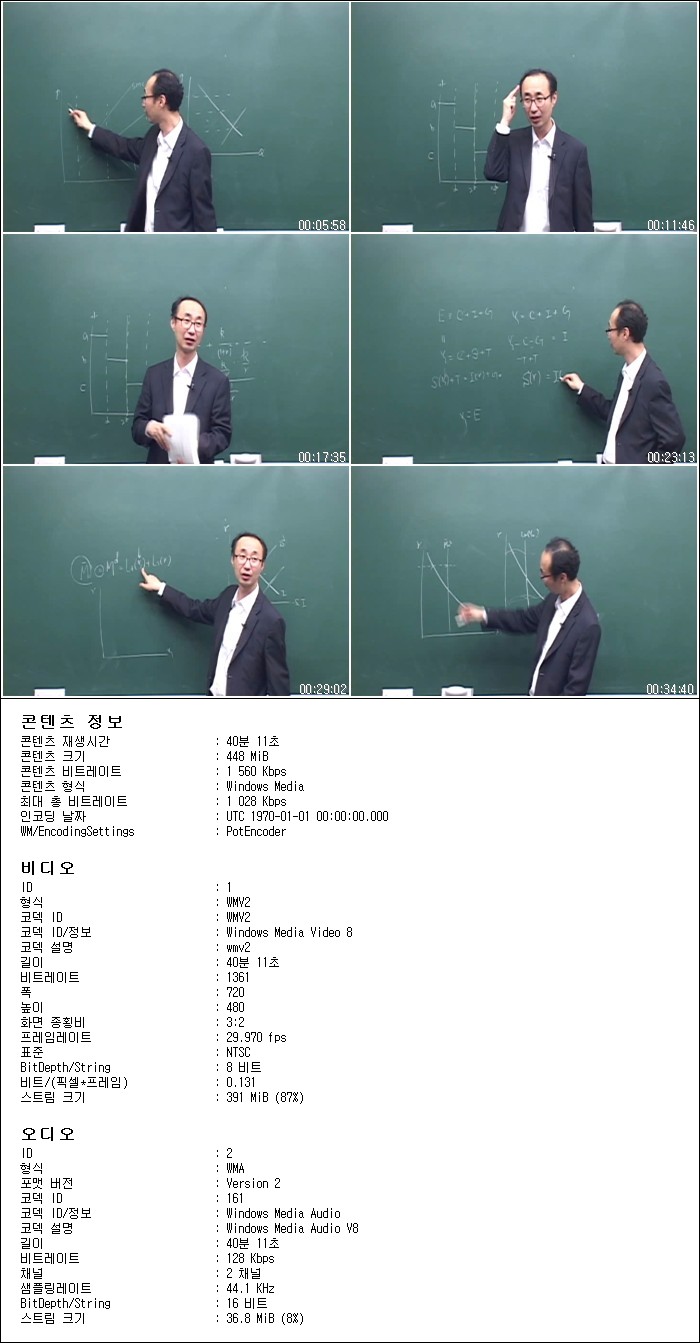 00:05:58
00:11:46
a
b
c
00:17:35
a
b
c
E = C + I + G
Y = C + I + G
Y = E
00:23:13
00:29:02
00:34:40
콘텐츠 정보
콘텐츠 재생시간 : 40분 11초
콘텐츠 크기 : 448 MiB
콘텐츠 비트레이트 : 1 560 Kbps
콘텐츠 형식 : Windows Media
최대 총 비트레이트 : 1 028 Kbps
인코딩 날짜 : UTC 1970-01-01 00:00:00.000
WM/EncodingSettings : PotEncoder
비디오
ID : 1
형식 : WMV2
코덱 ID : WMV2
코덱 ID/정보 : Windows Media Video 8
코덱 설명 : wmv2
길이 : 40분 11초
비트레이트 : 1361
폭 : 720
높이 : 480
화면 종횡비 : 3:2
프레임레이트 : 29.970 fps
표준 : NTSC
BitDepth/String : 8 비트
비트/(픽셀*프레임) : 0.131
스트림 크기 : 391 MiB (87%)
오디오
ID : 2
형식 : WMA
포맷 버전 : Version 2
코덱 ID : 161
코덱 ID/정보 : Windows Media Audio
코덱 설명 : Windows Media Audio V8
길이 : 40분 11초
비트레이트 : 128 Kbps
채널 : 2 채널
샘플링레이트 : 44.1 KHz
BitDepth/String : 16 비트
스트림 크기 : 36.8 MiB (8%)